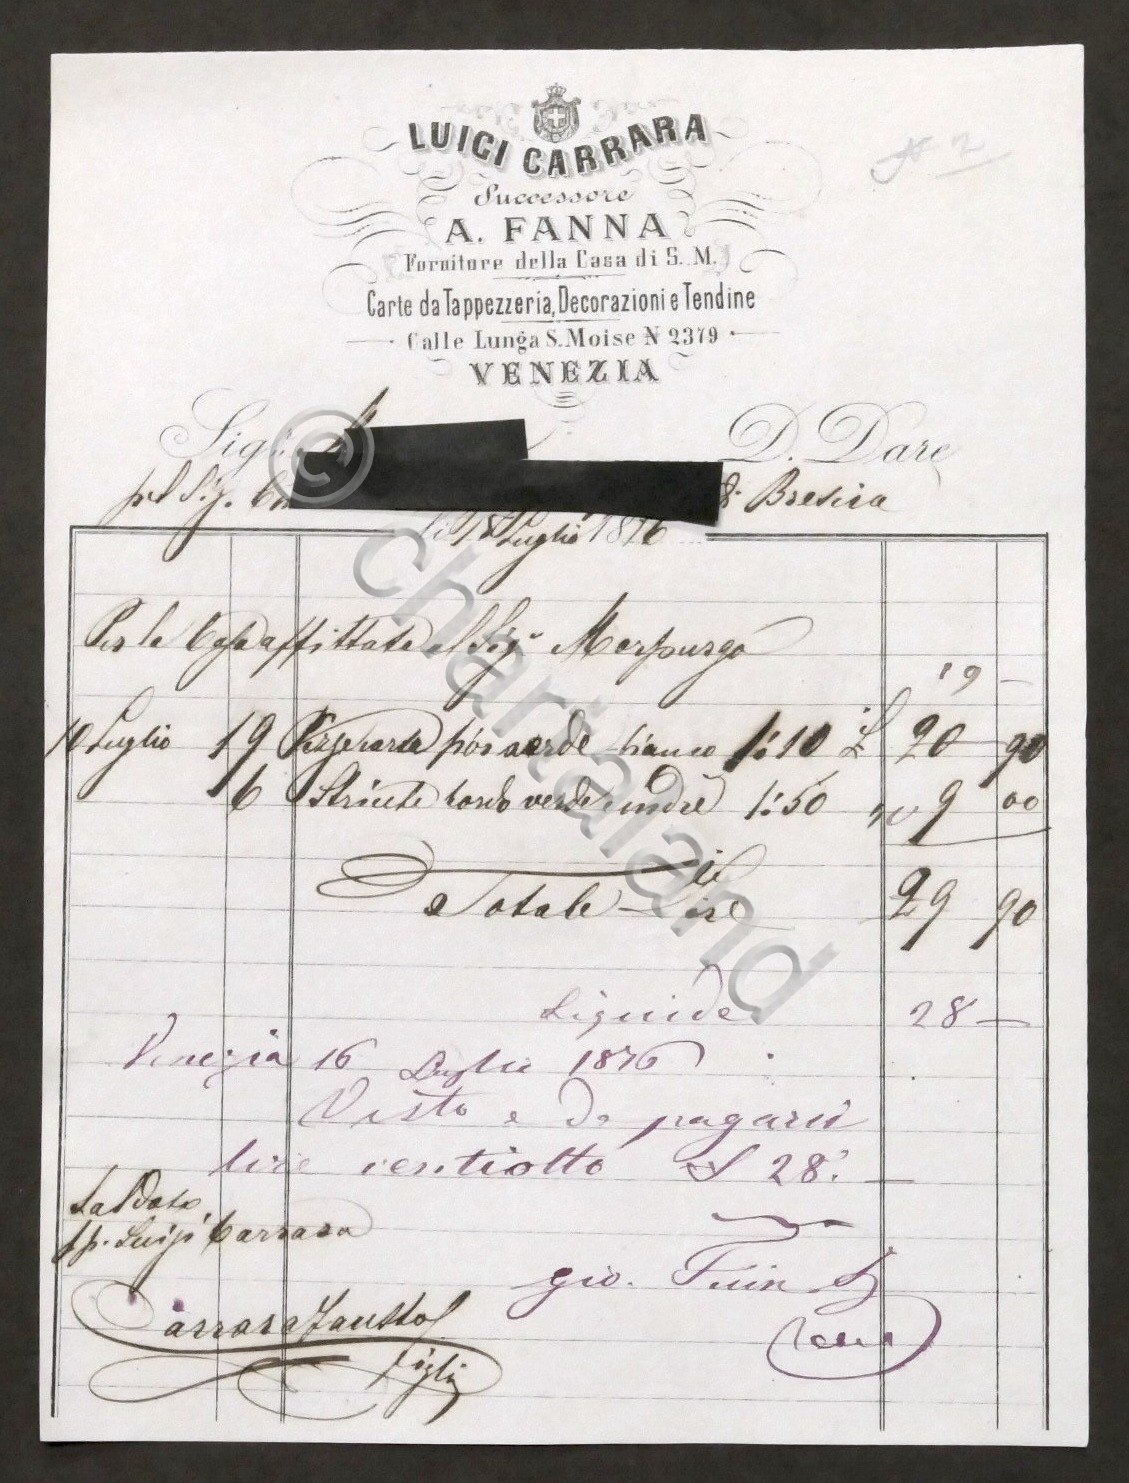 N 2
LUIGI CARRARA
Successore
A. FANNA
Fornitore della Casa di S. M.
Carte da Tappezzeria, Decorazioni e Tendine
Calle Lunga S. Moise N 2379
VENEZIA
Sigr. D. Dare
pel Sig. di Brescia
li 18 Luglio 1876
Per la Casa affittata al Sigr Morpurgo
19 —
10 Luglio 19 Pezze carta verde bianco 1:10 £ 20 90
6 bordo verde 1:50 9 00
Totale Lire 29 90
Liquide 28 —
Venezia 16 Luglio 1876
Visto e da pagarsi
lire ventiotto £ 28. —
Saldato
pp. Luigi Carrara
Carrara Fausto
figlio
gio.
chartaland
©